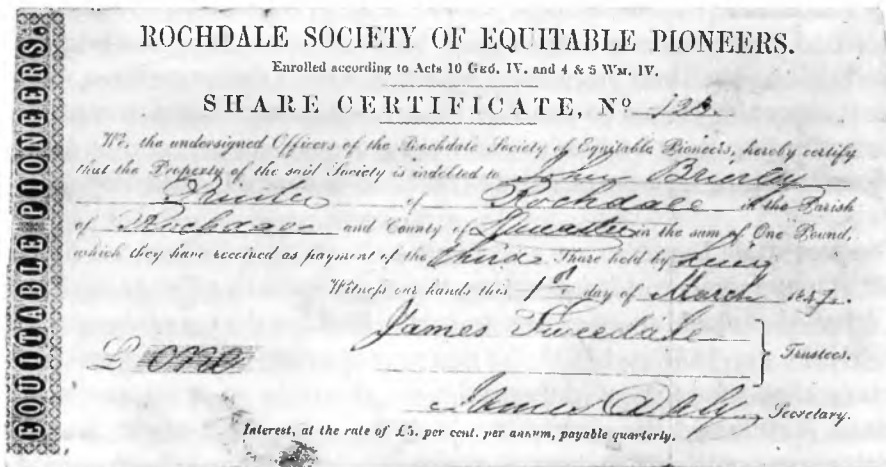 EQUITABLE PIONEERS.
ROCHDALE SOCIETY OF EQUITABLE PIONEERS.
Enrolled according to Acts 10 GEO. IV. and 4 & 5 WM. IV.
SHARE CERTIFICATE, No
We, the undersigned Officers of the Rochdale Society of Equitable Pioneers, hereby certify
that the Property of the said Society is indebted to John Brierley
of Rochdale in the Parish
of Rochdale and County of Lancaster in the sum of One Pound,
which they have received as payment of the third Share held by him
Witness our hands this 1st day of March 1847.
James Tweedale
Trustees.
£ one
James Daly Secretary.
Interest, at the rate of £5. per cent. per annum, payable quarterly.